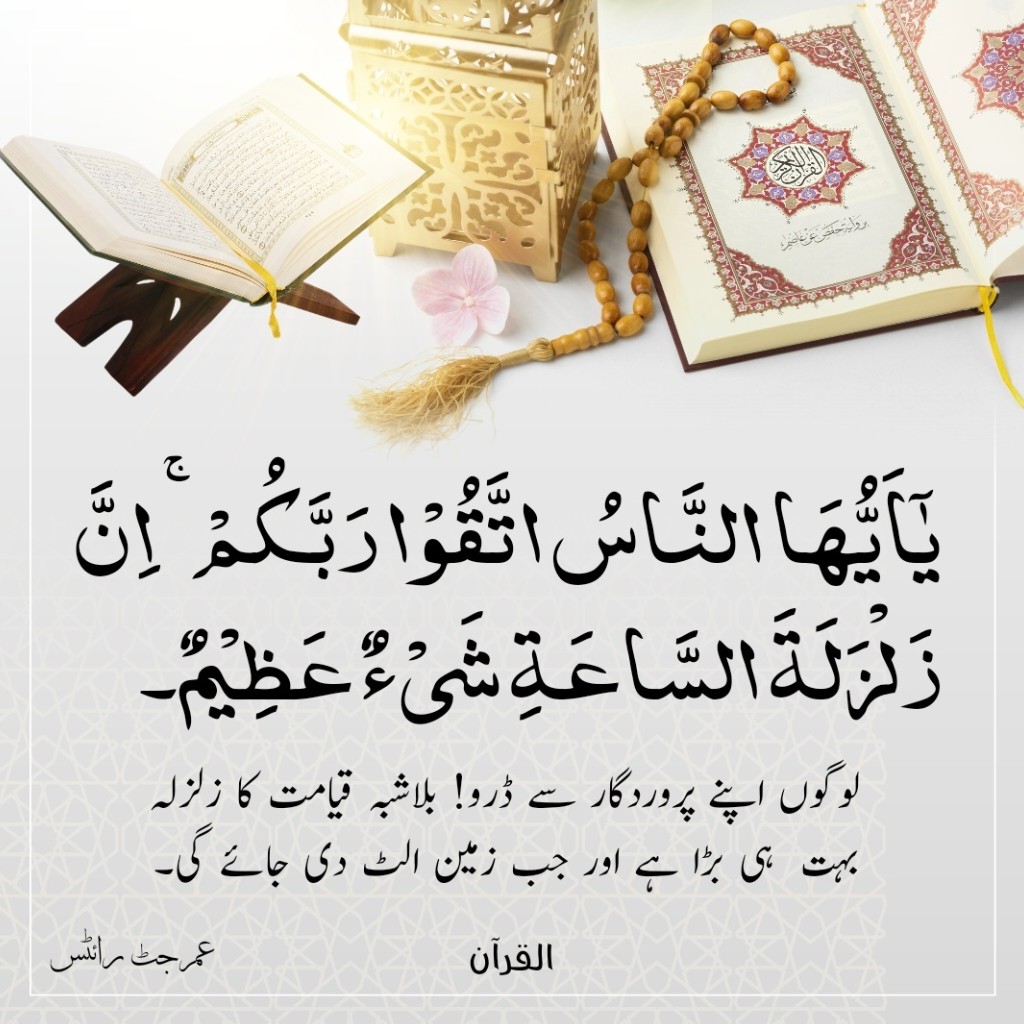 القرآن الكريم
برواية حفص عن عاصم
يٰٓاَيُّهَا النَّاسُ اتَّقُوْا رَبَّكُمْ ۚ اِنَّ
زَلْزَلَةَ السَّاعَةِ شَىْءٌ عَظِيْمٌ۔
لوگوں اپنے پروردگار سے ڈرو! بلاشبہ قیامت کا زلزلہ
بہت ہی بڑا ہے اور جب زمین الٹ دی جائے گی۔
القرآن
عمر جٹ رائٹس